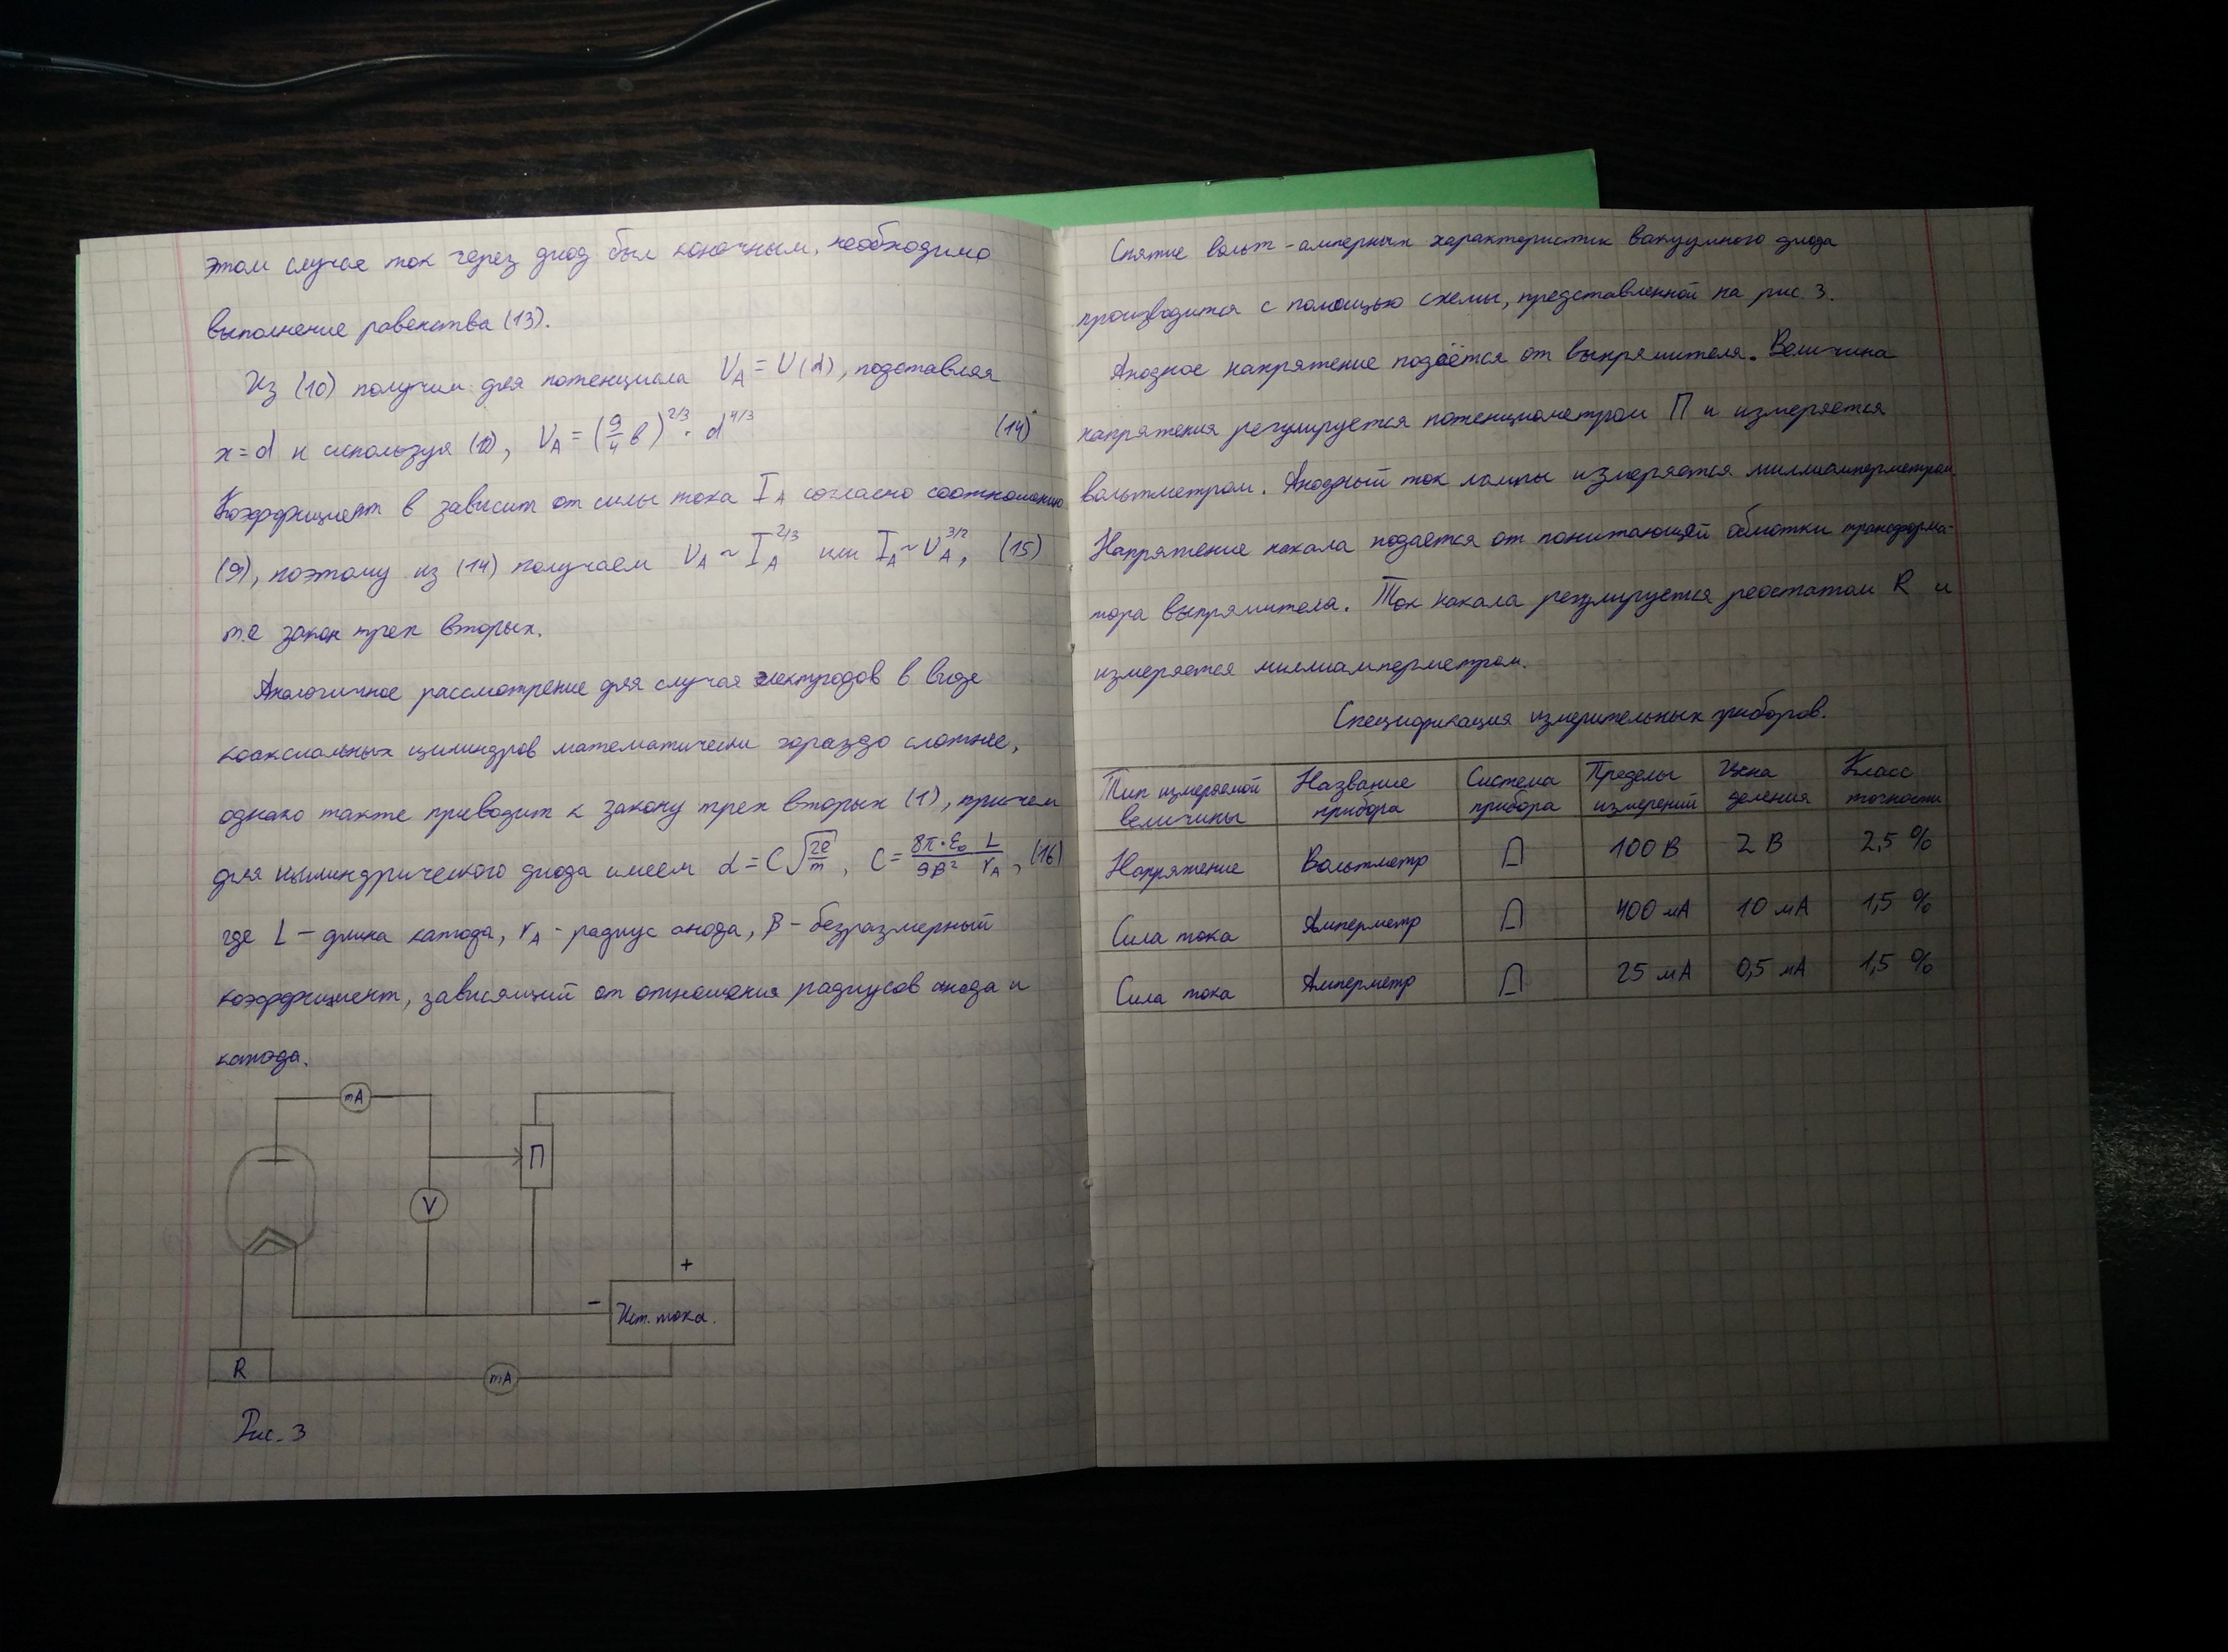 этом случае ток через диод был конечным, необходимо
выполнение равенства (13).
Из (10) получим для потенциала U_A = U(d), подставляя
x = d и используя (12), U_A = (9/4 b)^{2/3} · d^{4/3} (14)
Коэффициент b зависит от силы тока I_A согласно соотношению
(9), поэтому из (14) получаем U_A ~ I_A^{2/3} или I_A ~ U_A^{3/2}, (15)
т.е закон трех вторых.
Аналогичное рассмотрение для случая электродов в виде
коаксиальных цилиндров математически гораздо сложнее,
однако также приводит к закону трех вторых (1), причем
для цилиндрического диода имеем α = C√(2e/m), C = 8π·ε₀/9β² L/r_A, (16)
где L – длина катода, r_A - радиус анода, β – безразмерный
коэффициент, зависящий от отношения радиусов анода и
катода.
mA
П
V
+
-
Ист. тока.
R
mA
Рис. 3
Снятие вольт-амперных характеристик вакуумного диода
производится с помощью схемы, представленной на рис 3.
Анодное напряжение подаётся от выпрямителя. Величина
напряжения регулируется потенциометром П и измеряется
вольтметром. Анодный ток лампы измеряется миллиамперметром.
Напряжение накала подается от понижающей обмотки трансформа-
тора выпрямителя. Ток накала регулируется реостатом R и
измеряется миллиамперметром.
Спецификация измерительных приборов.
Тип измеряемой величины Название прибора Система прибора Пределы измерений Цена деления Класс точности
Напряжение Вольтметр 100 В 2 В 2,5 %
Сила тока Амперметр 400 мА 10 мА 1,5 %
Сила тока Амперметр 25 мА 0,5 мА 1,5 %